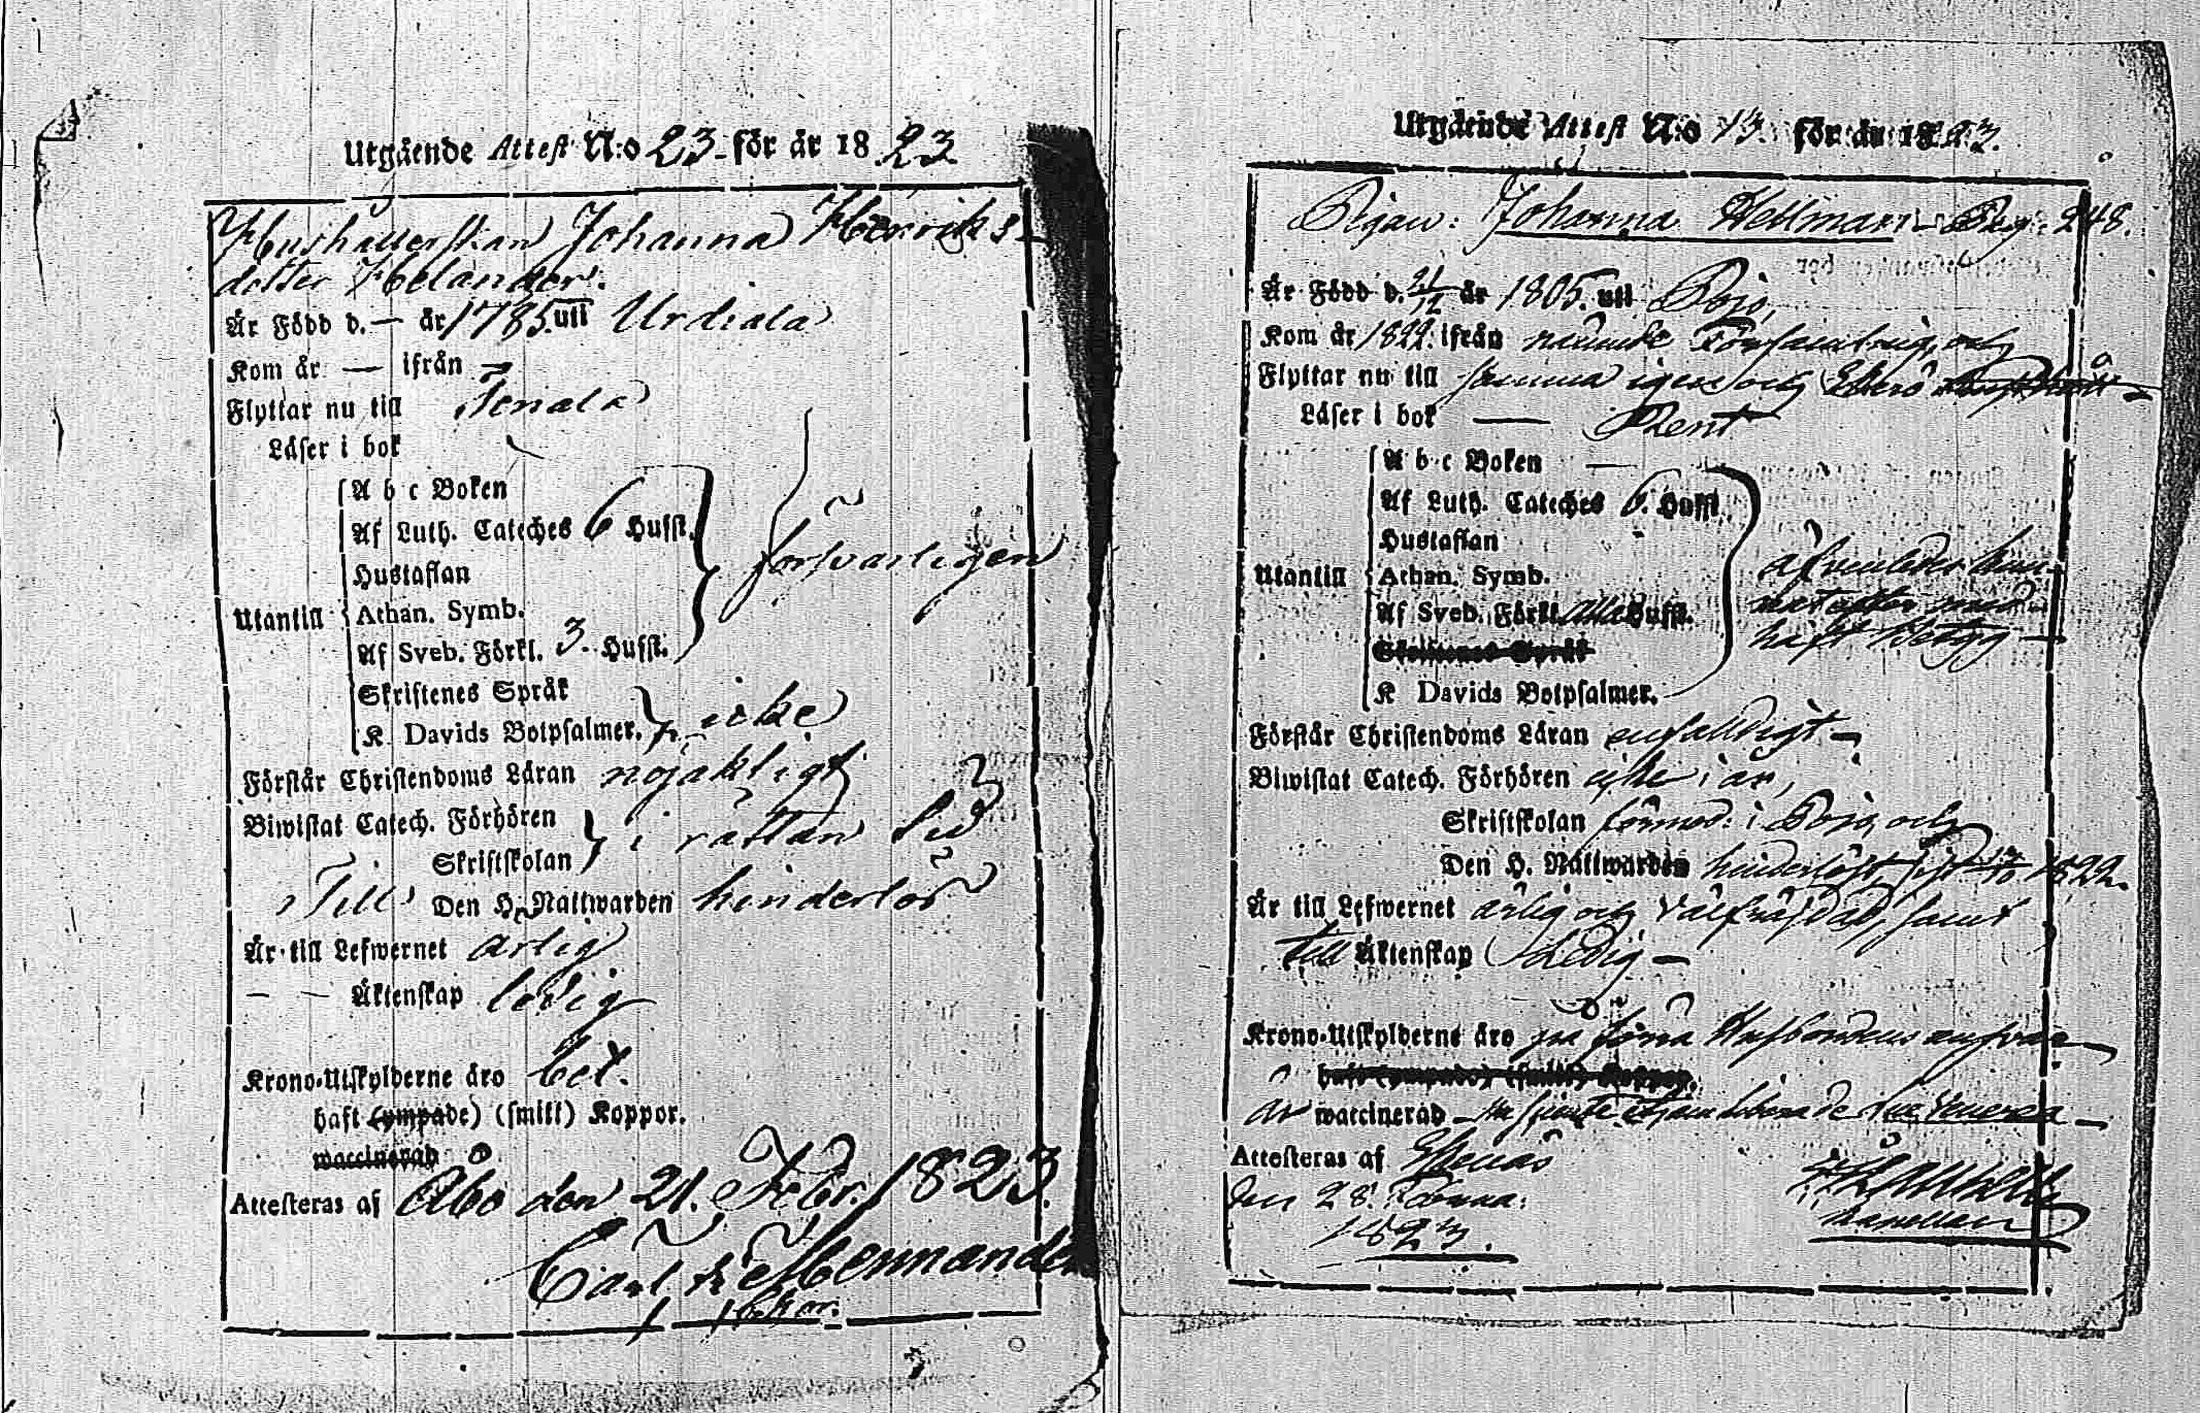 Utgående Attest N:o 23 för år 1823.
Hushållerskan Johanna Henriks-
dotter Helander.
Är Född d. — år 1785. uti Urdiala
Kom år — ifrån —
Flyttar nu till Tenala
Läser i bok
A b c Boken
Af Luth. Cateches 6 Hufst.
Hustaflan
försvarligen
Utantill
Athan. Symb.
Af Sveb. Förkl. 3. Hufst.
Skriftenes Språk
K Davids Botpsalmer. icke
Förstår Christendoms Läran nöjaktligt
Biwistat Catech. Förhören
i rättan tid
Skriftskolan
Till Den H. Nattwarden hinderlös
Är till Lefwernet ärlig
— — Äktenskap ledig
Krono-Utskylderne äro bet.
haft (ympade) (smitt) Koppor.
waccinerad
Attesteras af Åbo den 21. Febr. 1823.
Carl Fr. Mennander
Utgående Attest N:o 13. för år 1823.
Pigan: Johanna Hellman Pag. 248.
Är Född d. 21/12 år 1805. uti Pojo,
Kom år 1822. ifrån nämnde Församling, och
Flyttar nu till samma igen och
Läser i bok — Rent
A b c Boken —
Af Luth. Cateches 6. Hufst.
Hustaflan
Utantill
Athan. Symb.
Af Sveb. Förkl. alla Hufst.
Skriftenes Språk
K Davids Botpsalmer.
haft Betyg —
Förstår Christendoms Läran enfaldigt —
Biwistat Catech. Förhören ej i år,
Skriftskolan i Pojo, och
Den H. Nattwarden hinderlöst, sist 1822.
Är till Lefwernet ärlig och välfräjdad, samt
till Äktenskap Ledig —
Krono-Utskylderne äro på förra Husbondens ansvar —
haft (ympade) (smitt) Koppor.
är waccinerad —
Attesteras af Ekenäs
den 28.
1823.
kapellan